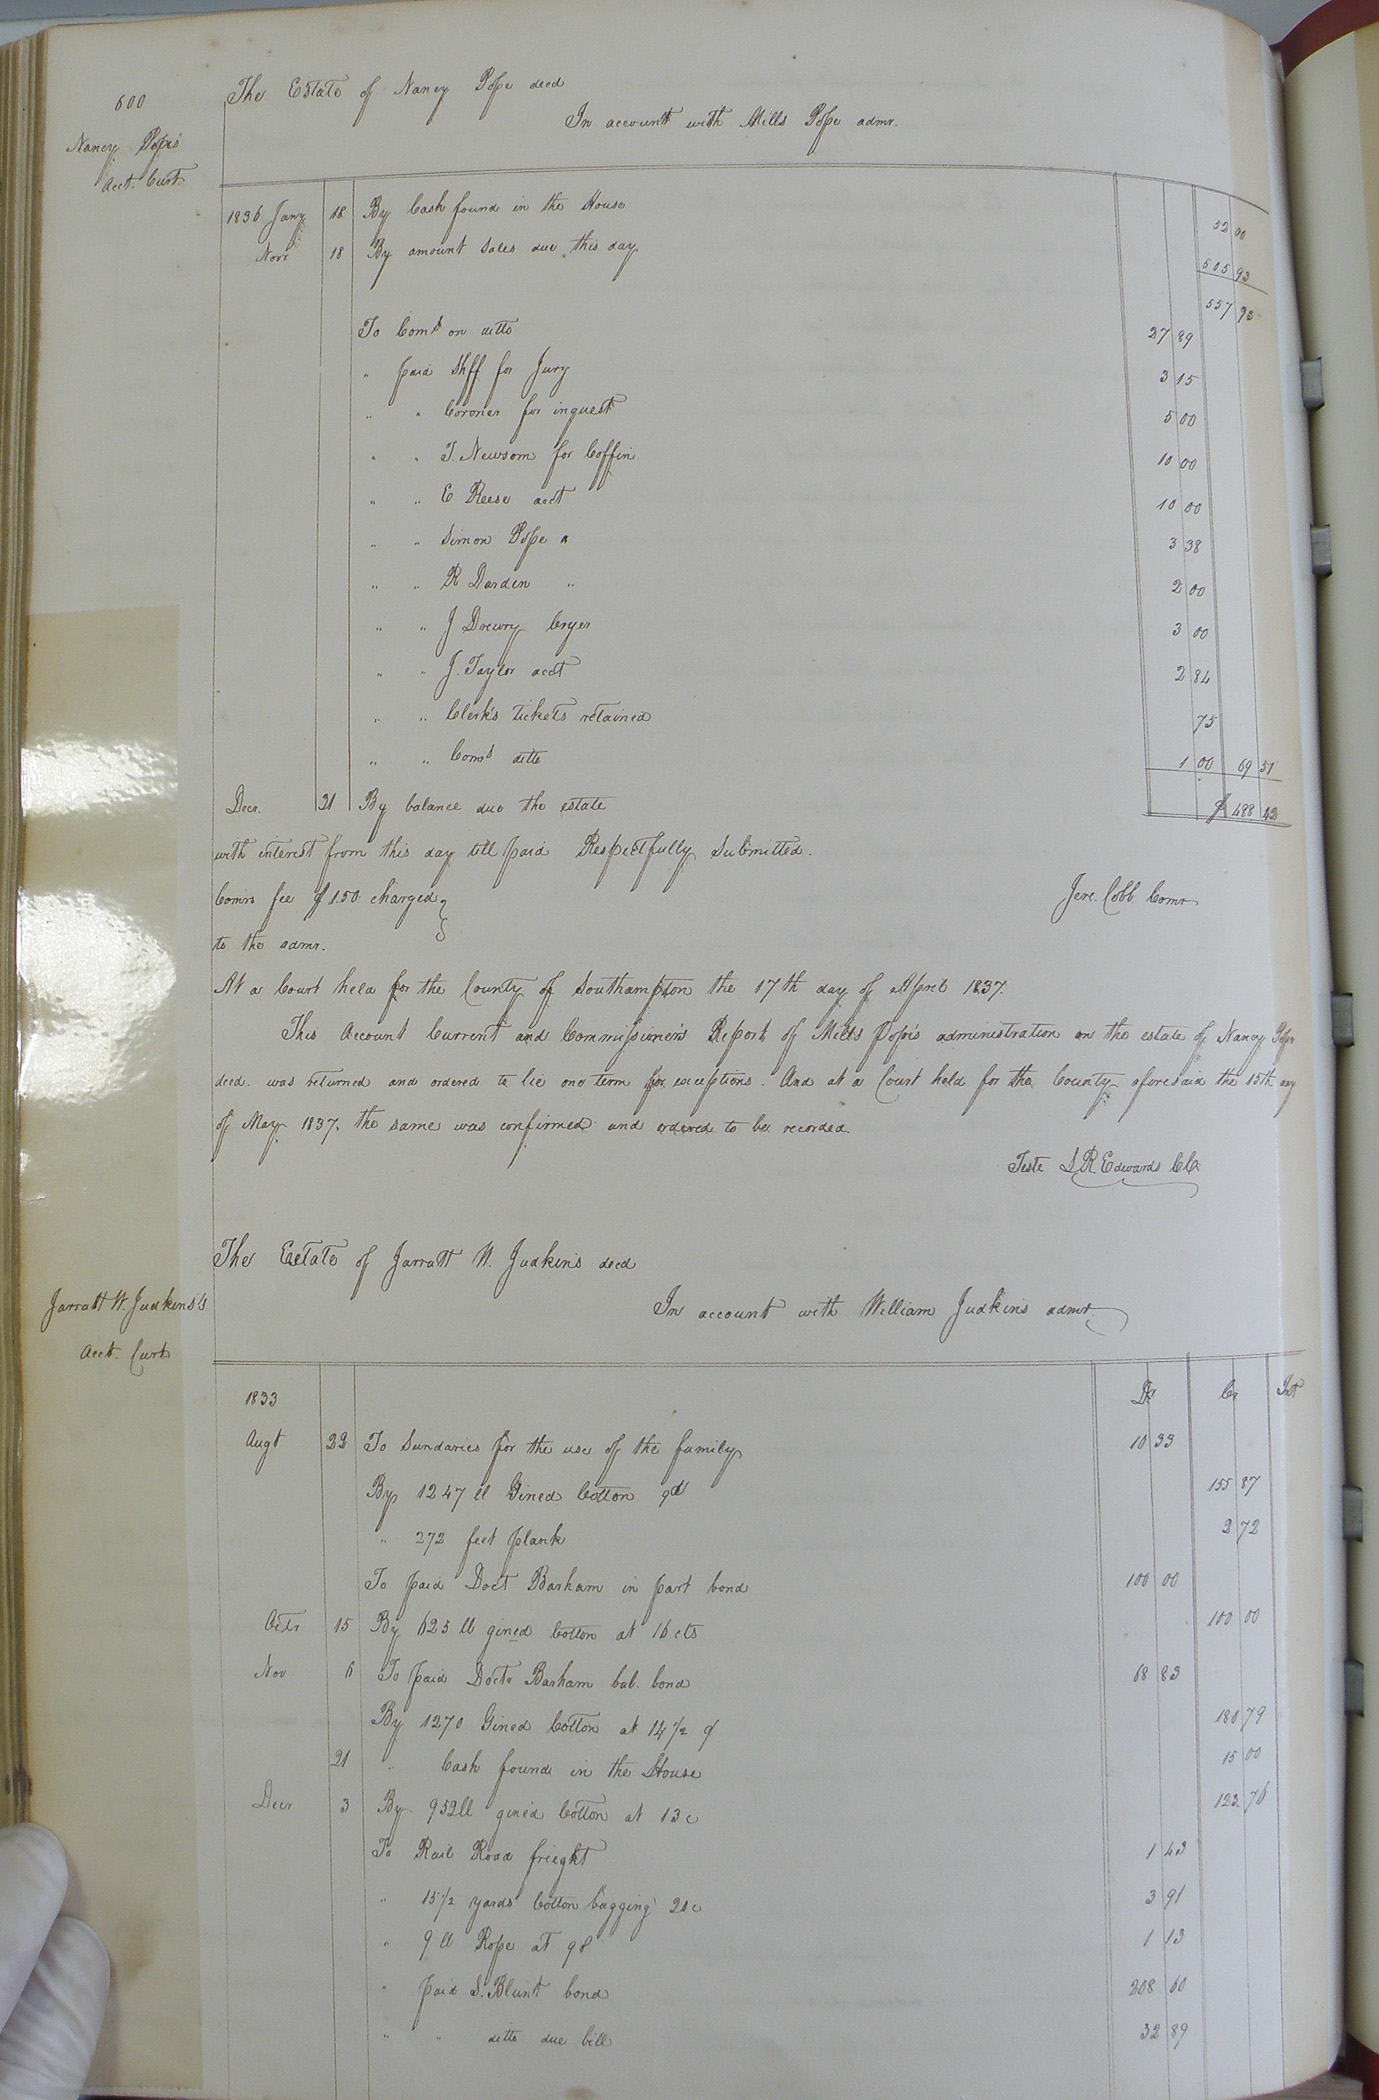 600
The Estate of Nancy Pope decd
In account with Mills Pope admr.
Nancy Pope's
Acct. Curt.
1836 Jany 18 By Cash found in the House 52 00
Novr 18 By amount Sales due this day 505 93
557 93
To Coms on ditto 27 89
" paid Shff for Jury 3 15
" " Coroner for inquest 5 00
" " T. Newsom for Coffin 10 00
" " E Reese acct 10 00
" " Simon Pope " 3 38
" " R Darden " 2 00
" " J Drewry Cryer 3 00
" " J. Taylor acct 2 84
" " Clerk's tickets retained 75
" " Coms ditto 1 00 69 51
Decr. 31 By balance due the estate $ 488 42
with interest from this day till paid Respectfully Submitted.
Comrs fee $1.50 charged }
to the admr.
Jere. Cobb Comr
At a Court held for the County of Southampton the 17th day of April 1837.
This Account Current and Commissioner's Report of Mills Pope's administration on the estate of Nancy Pope
decd. was returned and ordered to lie one term for exceptions. And at a Court held for the County aforesaid the 15th day
of May 1837. the same was confirmed and ordered to be recorded.
Teste L R. Edwards C.C.
The Estate of Jarratt W. Judkins decd
In account with William Judkins admr.
Jarratt W. Judkins's
Acct. Curt
1833 Dr Cr Int
Augt 22 To Sundaries for the use of the family 10 33
By 1247 ll Gined Cotton 9d 155 87
" 272 feet plank 2 72
To paid Doct Barham in part bond 100 00
Octr 15 By 625 ll gined Cotton at 16 cts 100 00
Nov 6 To paid Doctr Barham bal. bond 68 83
By 1270 Gined Cotton at 14 1/2 ¢ 180 79
21 " Cash found in the House 15 00
Decr 3 By 952 ll gined Cotton at 13 c 123 76
To Rail Road frieght 1 43
" 15 1/2 yards Cotton bagging 25 c 3 91
" 9 ll Rope at 9d 1 13
" paid S. Blunt bond 208 60
" " ditto due bill 32 89